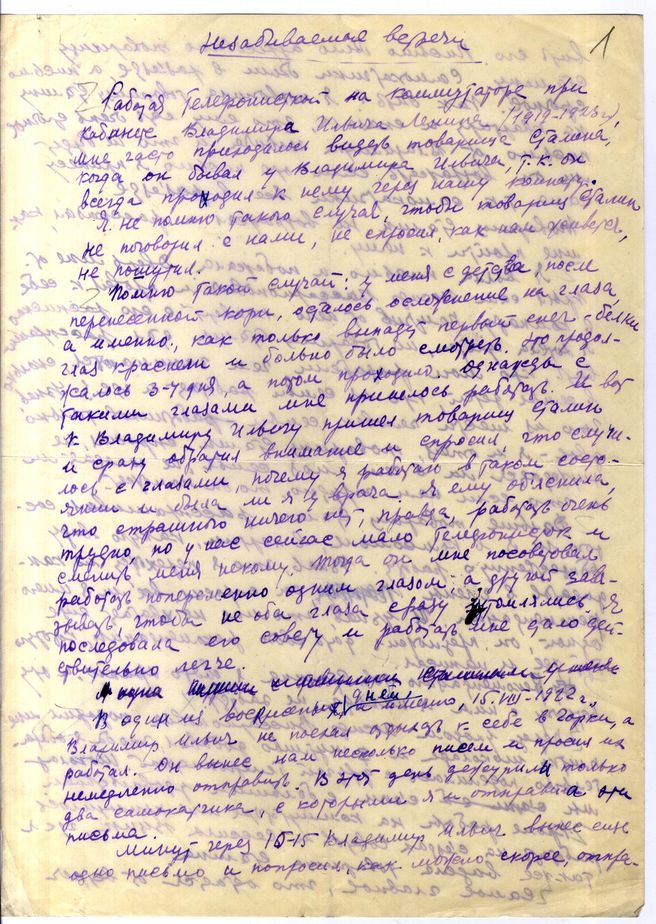 Незабываемая встреча
1
Работая телефонисткой на коммутаторе при
кабинете Владимира Ильича Ленина (1919-1923 г),
мне часто приходилось видеть товарища Сталина,
когда он бывал у Владимира Ильича, т.к. он
всегда проходил к нему через нашу комнату.
Я не помню такого случая, чтобы товарищ Сталин
не поговорил с нами, не спросил, как нам живется,
не пошутил.
Помню такой случай: у меня с детства, после
перенесенной кори, сдалось осложнение на глаза,
а именно: как только выпадут первый снег - белки
глаз краснели и больно было смотреть. Это продол-
жалось 3-4 дня, а потом проходило. Однажды с
такими глазами мне пришлось работать. И вот
к Владимиру Ильичу пришел товарищ Сталин
и сразу обратил внимание и спросил, что случи-
лось с глазами, почему я работаю в таком состо-
янии и была ли я у врача. Я ему объяснила,
что страшного ничего нет, правда, работать очень
трудно, но у нас сейчас мало телефонисток и
сменить меня некому. Тогда он мне посоветовал
работать попеременно одним глазом, а другой зав-
зывать, чтобы не оба глаза сразу утомлялись. Я
последовала его совету и работать мне дало дей-
ствительно легче.
дней
В один из воскресных а именно, 15.VIII-1922 г.,
Владимир Ильич не поехал отдыхать к себе в Горки, а
работал. Он вынес нам несколько писем и просил их
немедленно отправить. В этот день дежурили только
два самокатчика, с которыми я и отправила эти
письма.
Минут через 10-15 Владимир Ильич вынес еще
одно письмо и попросил, как можно скорее, отпра-